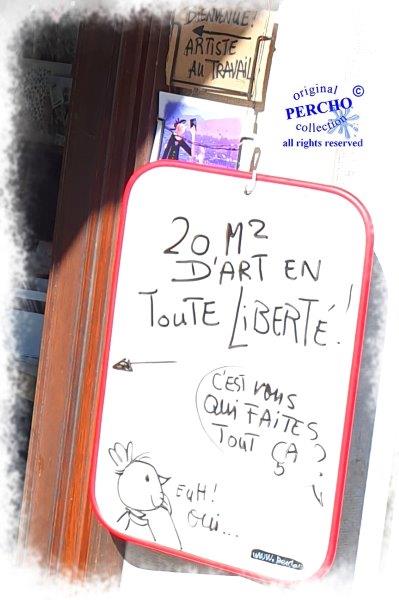 BIENVENUE!
ARTISTE
AU TRAVAIL
original ©
PERCHO
collection
all rights reserved
20 M²
D'ART EN
TOUTE LIBERTÉ!
C'EST VOUS
QUI FAITES
TOUT ÇA ?
EUH!
OUI...